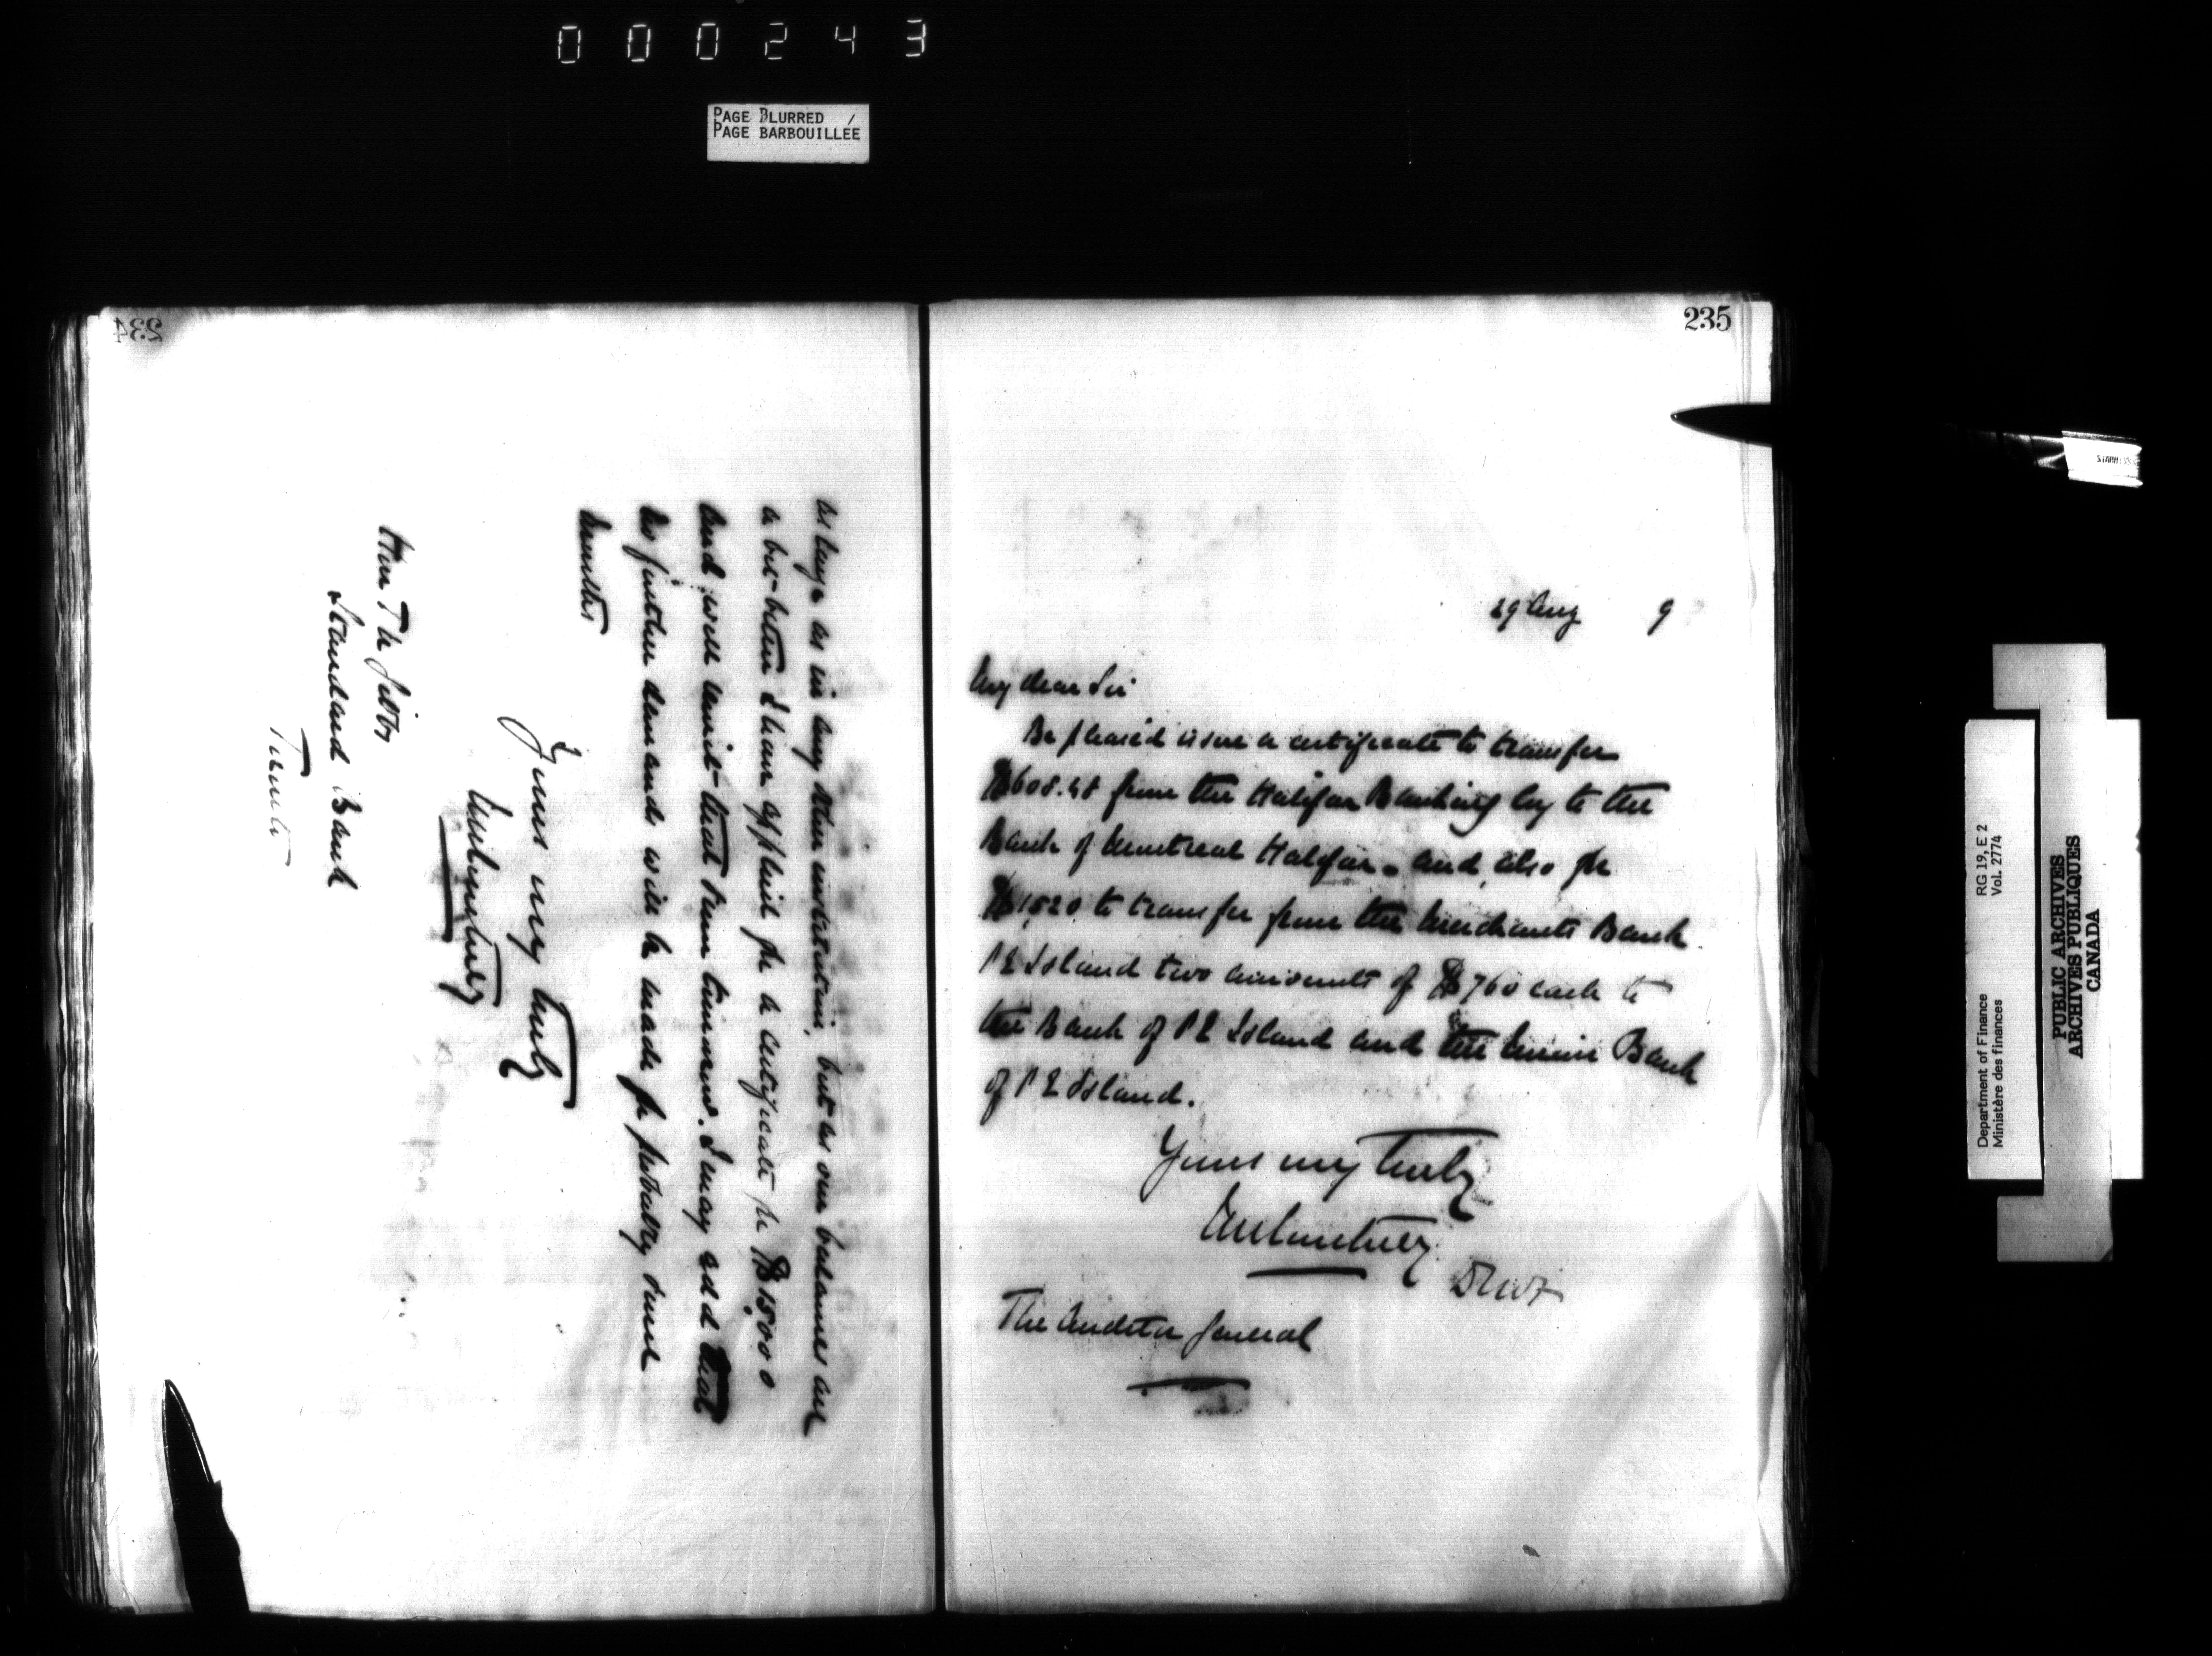 000243
PAGE BLURRED
PAGE BARBOUILLÉE
234
as large as in any other institution, but as our balances are
a bit better I have applied for a certificate for $15000
and will remit that sum tomorrow. I may add that
no further demands will be made for probably some
months
Yours very truly
JMCourtney
Hon T N Gibbs
Standard Bank
Toronto
235
29 Aug 9
My dear Sir
Be pleased issue a certificate to transfer
$608.48 from the Halifax Banking Coy to the
Bank of Montreal Halifax. and also for
$1520 to transfer from the Merchants Bank
P E Island two amounts of $760 each to
the Bank of P E Island and the Union Bank
of P E Island.
Yours very truly
JMCourtney
The Auditor General
Department of Finance
Ministère des finances
RG 19, E 2
Vol. 2774
PUBLIC ARCHIVES
ARCHIVES PUBLIQUES
CANADA